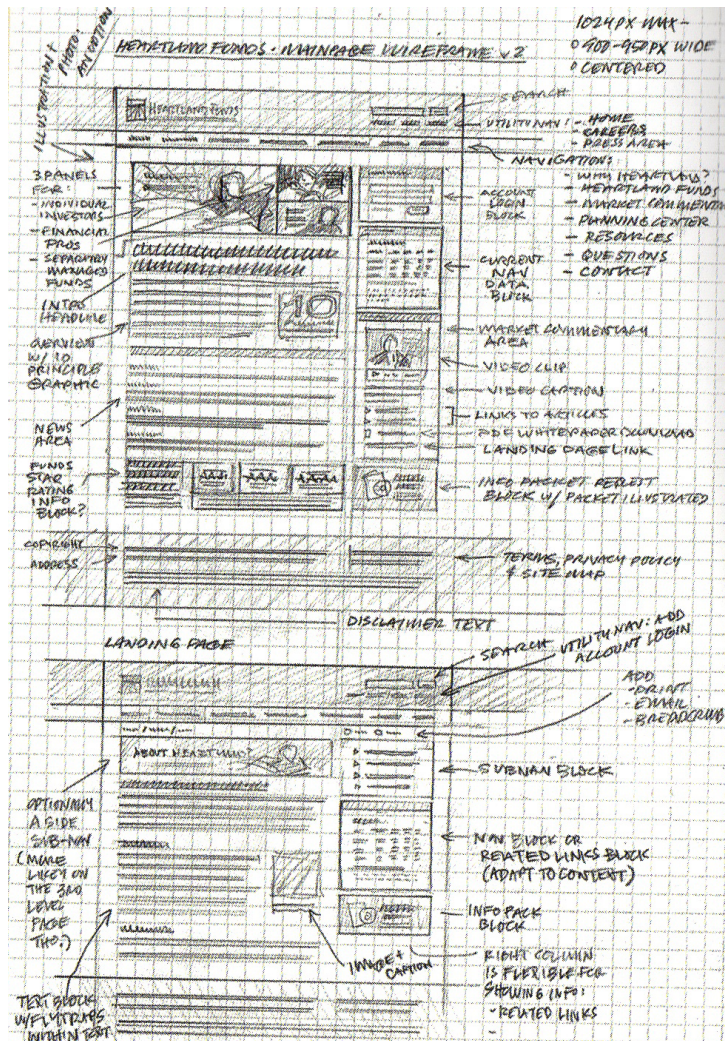 1024 PX MAX -
900-950 PX WIDE
CENTERED
HEARTLAND FUNDS - MAINPAGE WIREFRAME v2
ILLUSTRATION +
PHOTO:
HEARTLAND FUNDS
SEARCH
UTILITY NAV:
- HOME
- CAREERS
- PRESS AREA
NAVIGATION:
- WHY HEARTLAND?
- HEARTLAND FUNDS
- MARKET COMMENTA
- PLANNING CENTER
- RESOURCES
- QUESTIONS
- CONTACT
3 PANELS
FOR:
- INDIVIDUAL
INVESTORS
- FINANCIAL
PROS
- SEPARATELY
MANAGED
FUNDS
INTRO
HEADLINE
OVERVIEW
W/ 10
PRINCIPLE
GRAPHIC
NEWS
AREA
FUNDS
STAR
RATING
INFO
BLOCK?
COPYRIGHT
ADDRESS
10
ACCOUNT
LOGIN
BLOCK
CURRENT
NAV
DATA
BLOCK
MARKET COMMENTARY
AREA
VIDEO CLIP
VIDEO CAPTION
LINKS TO ARTICLES
PDF WHITEPAPER DOWNLOAD
LANDING PAGE LINK
INFO PACKET REQUEST
BLOCK W/ PACKET ILLUSTRATED
TERMS, PRIVACY POLICY
& SITE MAP
DISCLAIMER TEXT
LANDING PAGE
SEARCH
UTILITY NAV: ADD
ACCOUNT LOGIN
ADD
- PRINT
- EMAIL
- BREADCRUMB
ABOUT HEARTLAND?
SUBNAV BLOCK
OPTIONALLY
A SIDE
SUB-NAV
(MORE
LIKELY ON
THE 3RD
LEVEL
PAGE
THO.)
NAV BLOCK OR
RELATED LINKS BLOCK
(ADAPT TO CONTENT)
INFO PACK
BLOCK
IMAGE +
CAPTION
RIGHT COLUMN
IS FLEXIBLE FOR
SHOWING INFO:
- RELATED LINKS
-
TEXT BLOCK
W/ FLYTRAPS
WITHIN TEXT